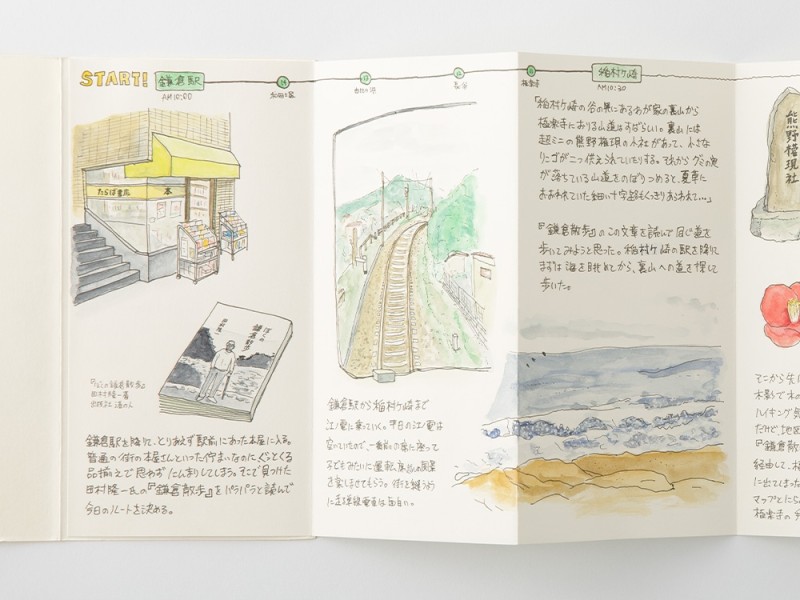 START!
鎌倉駅
AM10:00
和田塚
由比ヶ浜
長谷
極楽寺
稲村ヶ崎
AM10:30
たらば書房
本
ぼくの
鎌倉散歩
田村隆一
『ぼくの鎌倉散歩』
田村隆一著
出版社 港の人
鎌倉駅を降りて、とりあえず駅前にあった本屋に入る。
普通の街の本屋さんといった佇まいなのにぐっとくる
品揃えで思わずにんまりしてしまう。そこで見つけた
田村隆一氏の『鎌倉散歩』をパラパラと読んで
今日のルートを決める。
鎌倉駅から稲村ヶ崎まで
江ノ電に乗っていく。平日の江ノ電は
空いていたので、一番前の席に座って
子どもみたいに運転席からの風景
を楽しませてもらう。街を縫うよう
に走る単線電車は面白い。
「稲村ヶ崎の谷の奥にあるわが家の裏山から
極楽寺におりる山道はすばらしい。裏山には
超ミニの熊野権現の小社があって、小さな
リンゴが二つ供えられていたりする。それからグミの実
が落ちている山道をのぼりつめると、夏草に
おおわれていた細い十字路もくっきりあらわれて…」
『鎌倉散歩』のこの文章を読んで同じ道を
歩いてみようと思った。稲村ヶ崎の駅を降りて
まずは海を眺めてから、裏山への道を探して
歩いた。
熊野権現社